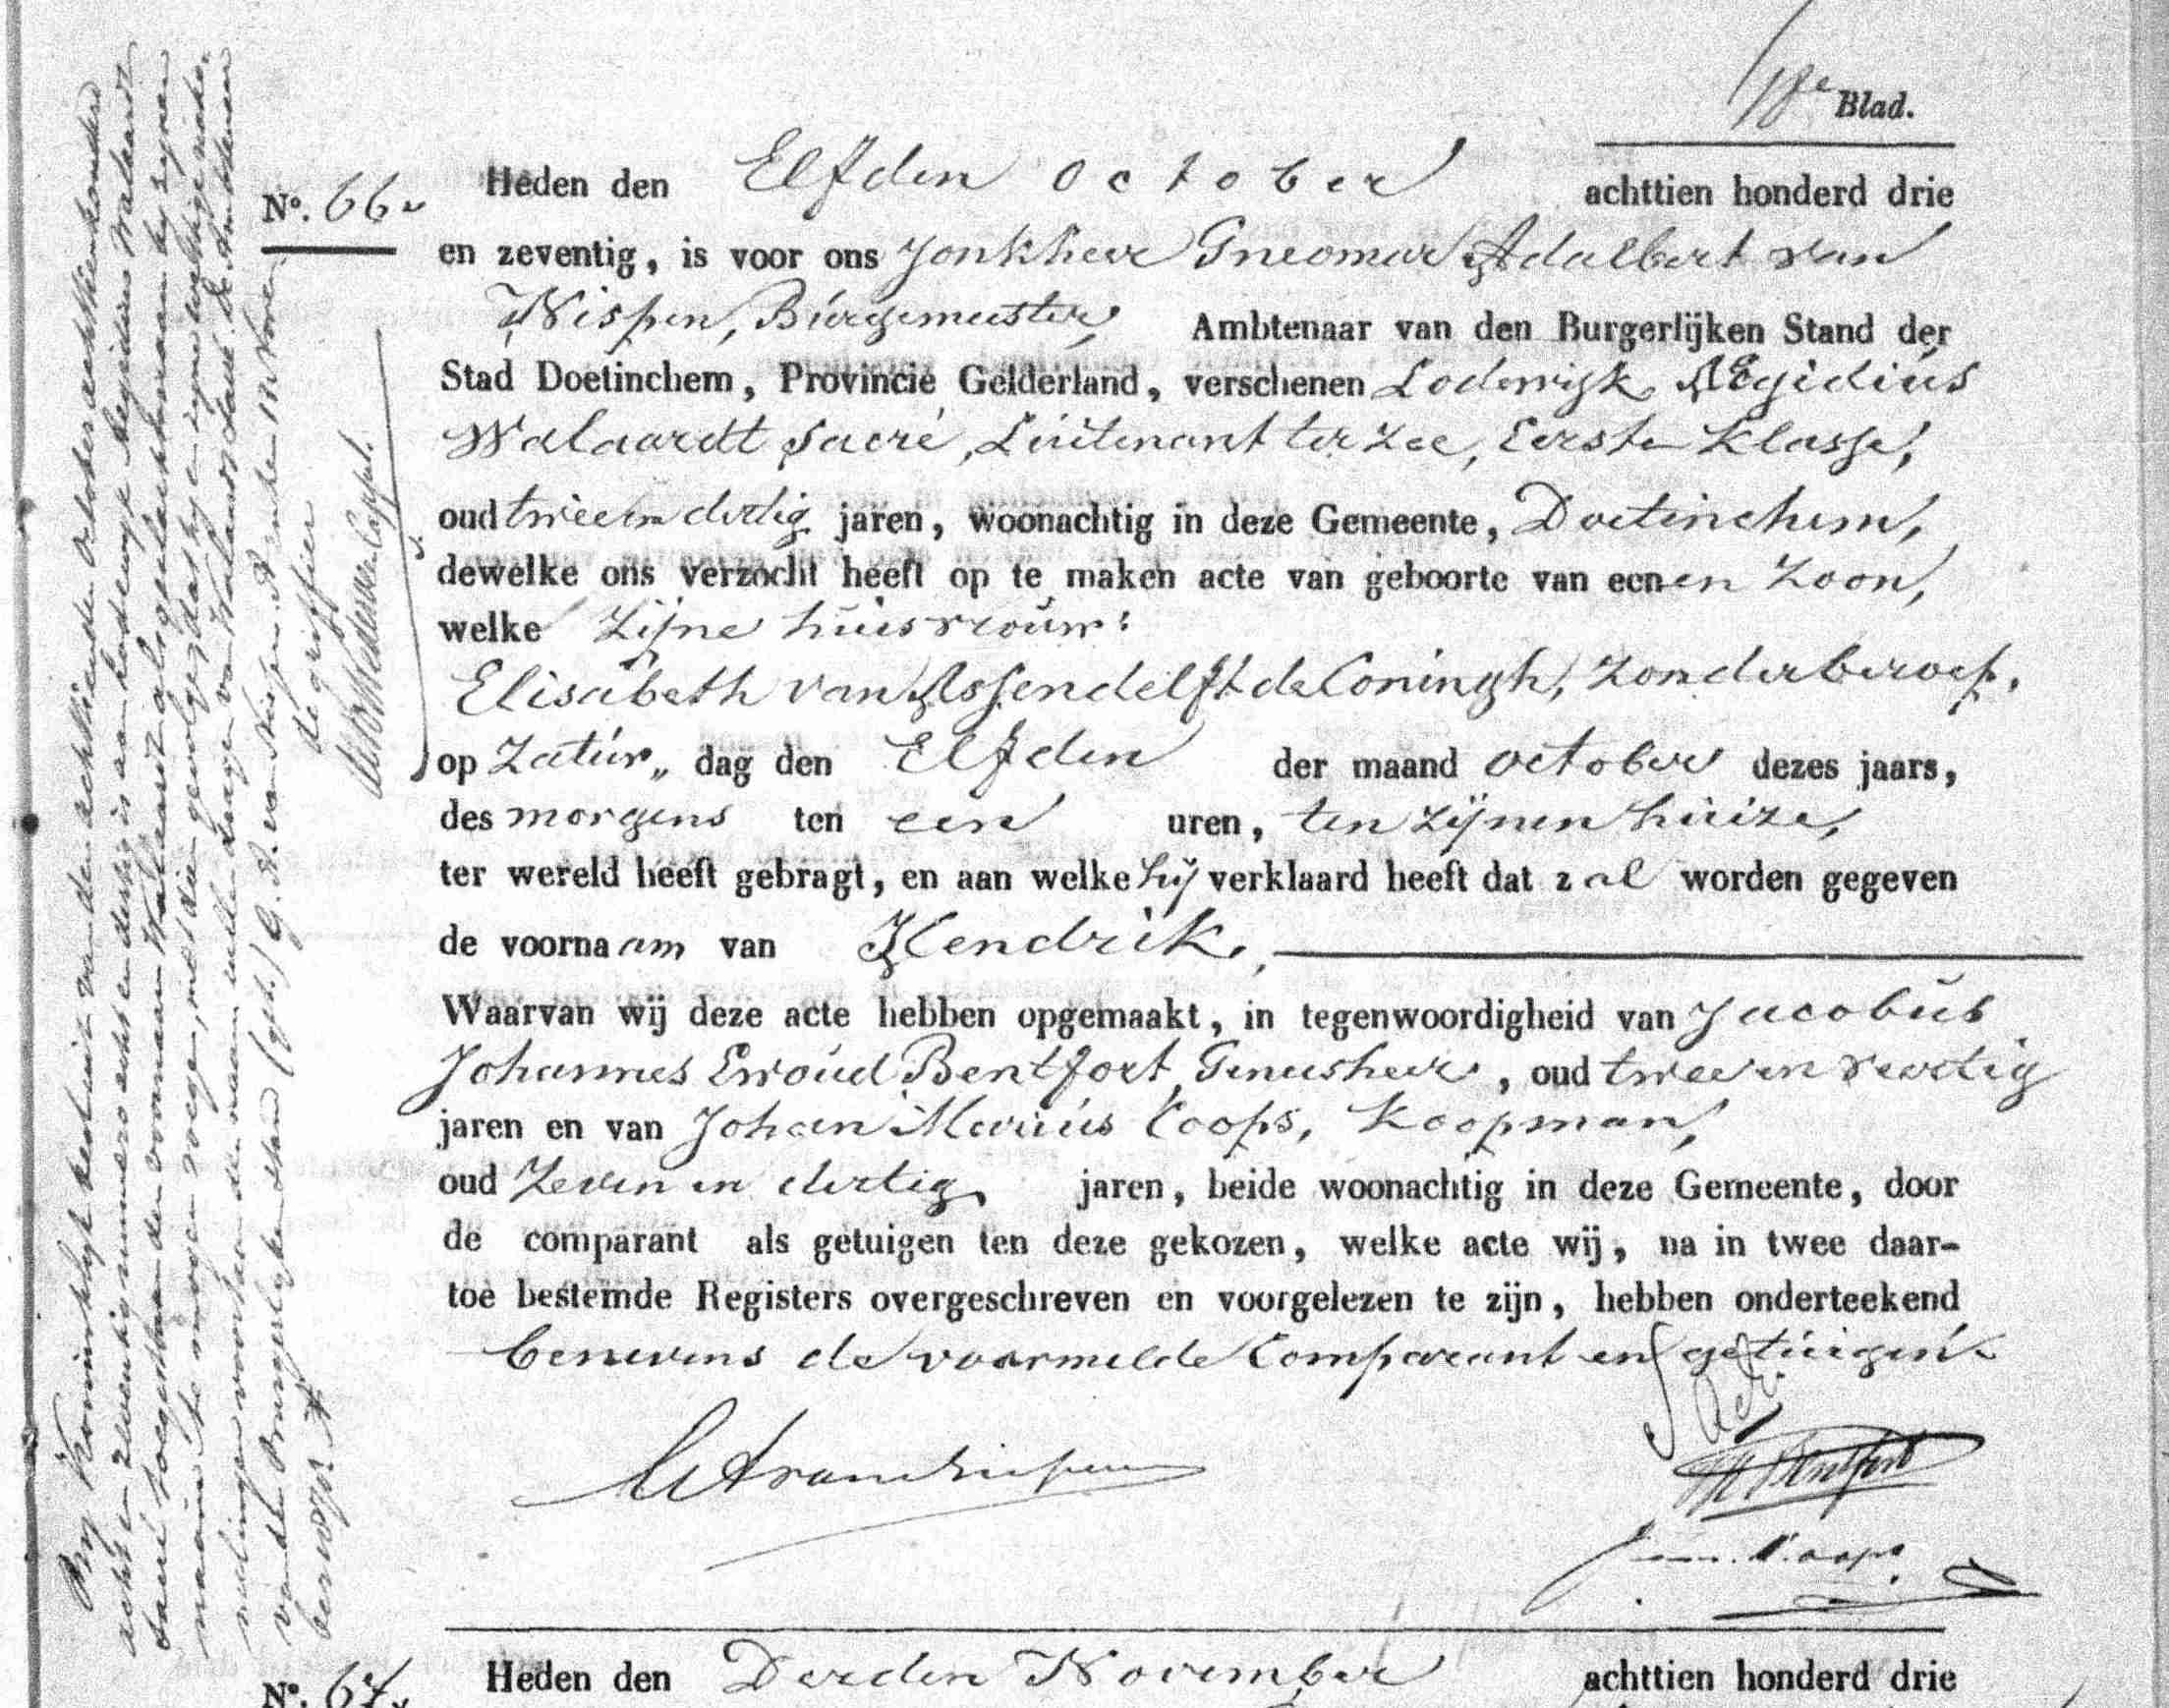 18e Blad.
No. 66
Heden den Elfden october achttien honderd drie
en zeventig, is voor ons Jonkheer Gneomar Adalbert van
Nispen, Burgemeester, Ambtenaar van den Burgerlijken Stand der
Stad Doetinchem, Provincie Gelderland, verschenen Lodewijk AEgidius
Walaardt Sacré, Luitenant ter Zee, Eerste Klasse,
oud twee en dertig jaren, woonachtig in deze Gemeente, Doetinchem,
dewelke ons verzocht heeft op te maken acte van geboorte van eenen Zoon,
welke Zijne huisvrouw:
Elisabeth van Assendelft de Coningh, Zonder beroep.
op Zatur„ dag den Elfden der maand october dezes jaars,
des morgens ten een uren, ten Zijnen huize,
ter wereld heeft gebragt, en aan welke hij verklaard heeft dat zal worden gegeven
de voornaam van Hendrik.
Waarvan wij deze acte hebben opgemaakt, in tegenwoordigheid van Jacobus
Johannes Ewoud Bentfort, Geneesheer, oud twee en veertig
jaren en van Johan Marius Coops, Koopman,
oud Zeven en dertig jaren, beide woonachtig in deze Gemeente, door
de comparant als getuigen ten deze gekozen, welke acte wij, na in twee daar-
toe bestemde Registers overgeschreven en voorgelezen te zijn, hebben onderteekend
benevens de voormelde Comparant en getuigen.
GA van Nispen
Sacré
Bentfort
Coops
By Koninklyk besluit van den achttienden October achttienhonderd
acht en zeventig nummero acht en dertig is aan Lodewyk Aegidius Walaardt
Sacré toegestaan den voornaam Walaardt als geslachtsnaam by zynen
naam te mogen voegen, met dien gevolge dat hy en zyne wettige nako-
melingen voortaan den naam zullen dragen van Walaardt Sacré. De Ambtenaar
van den Burgerlyken Stand (get.) G. A. van Nispen.
de griffier
No. 67
Heden den Derden November achttien honderd drie